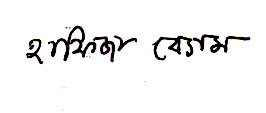 হাফিজা বেগম